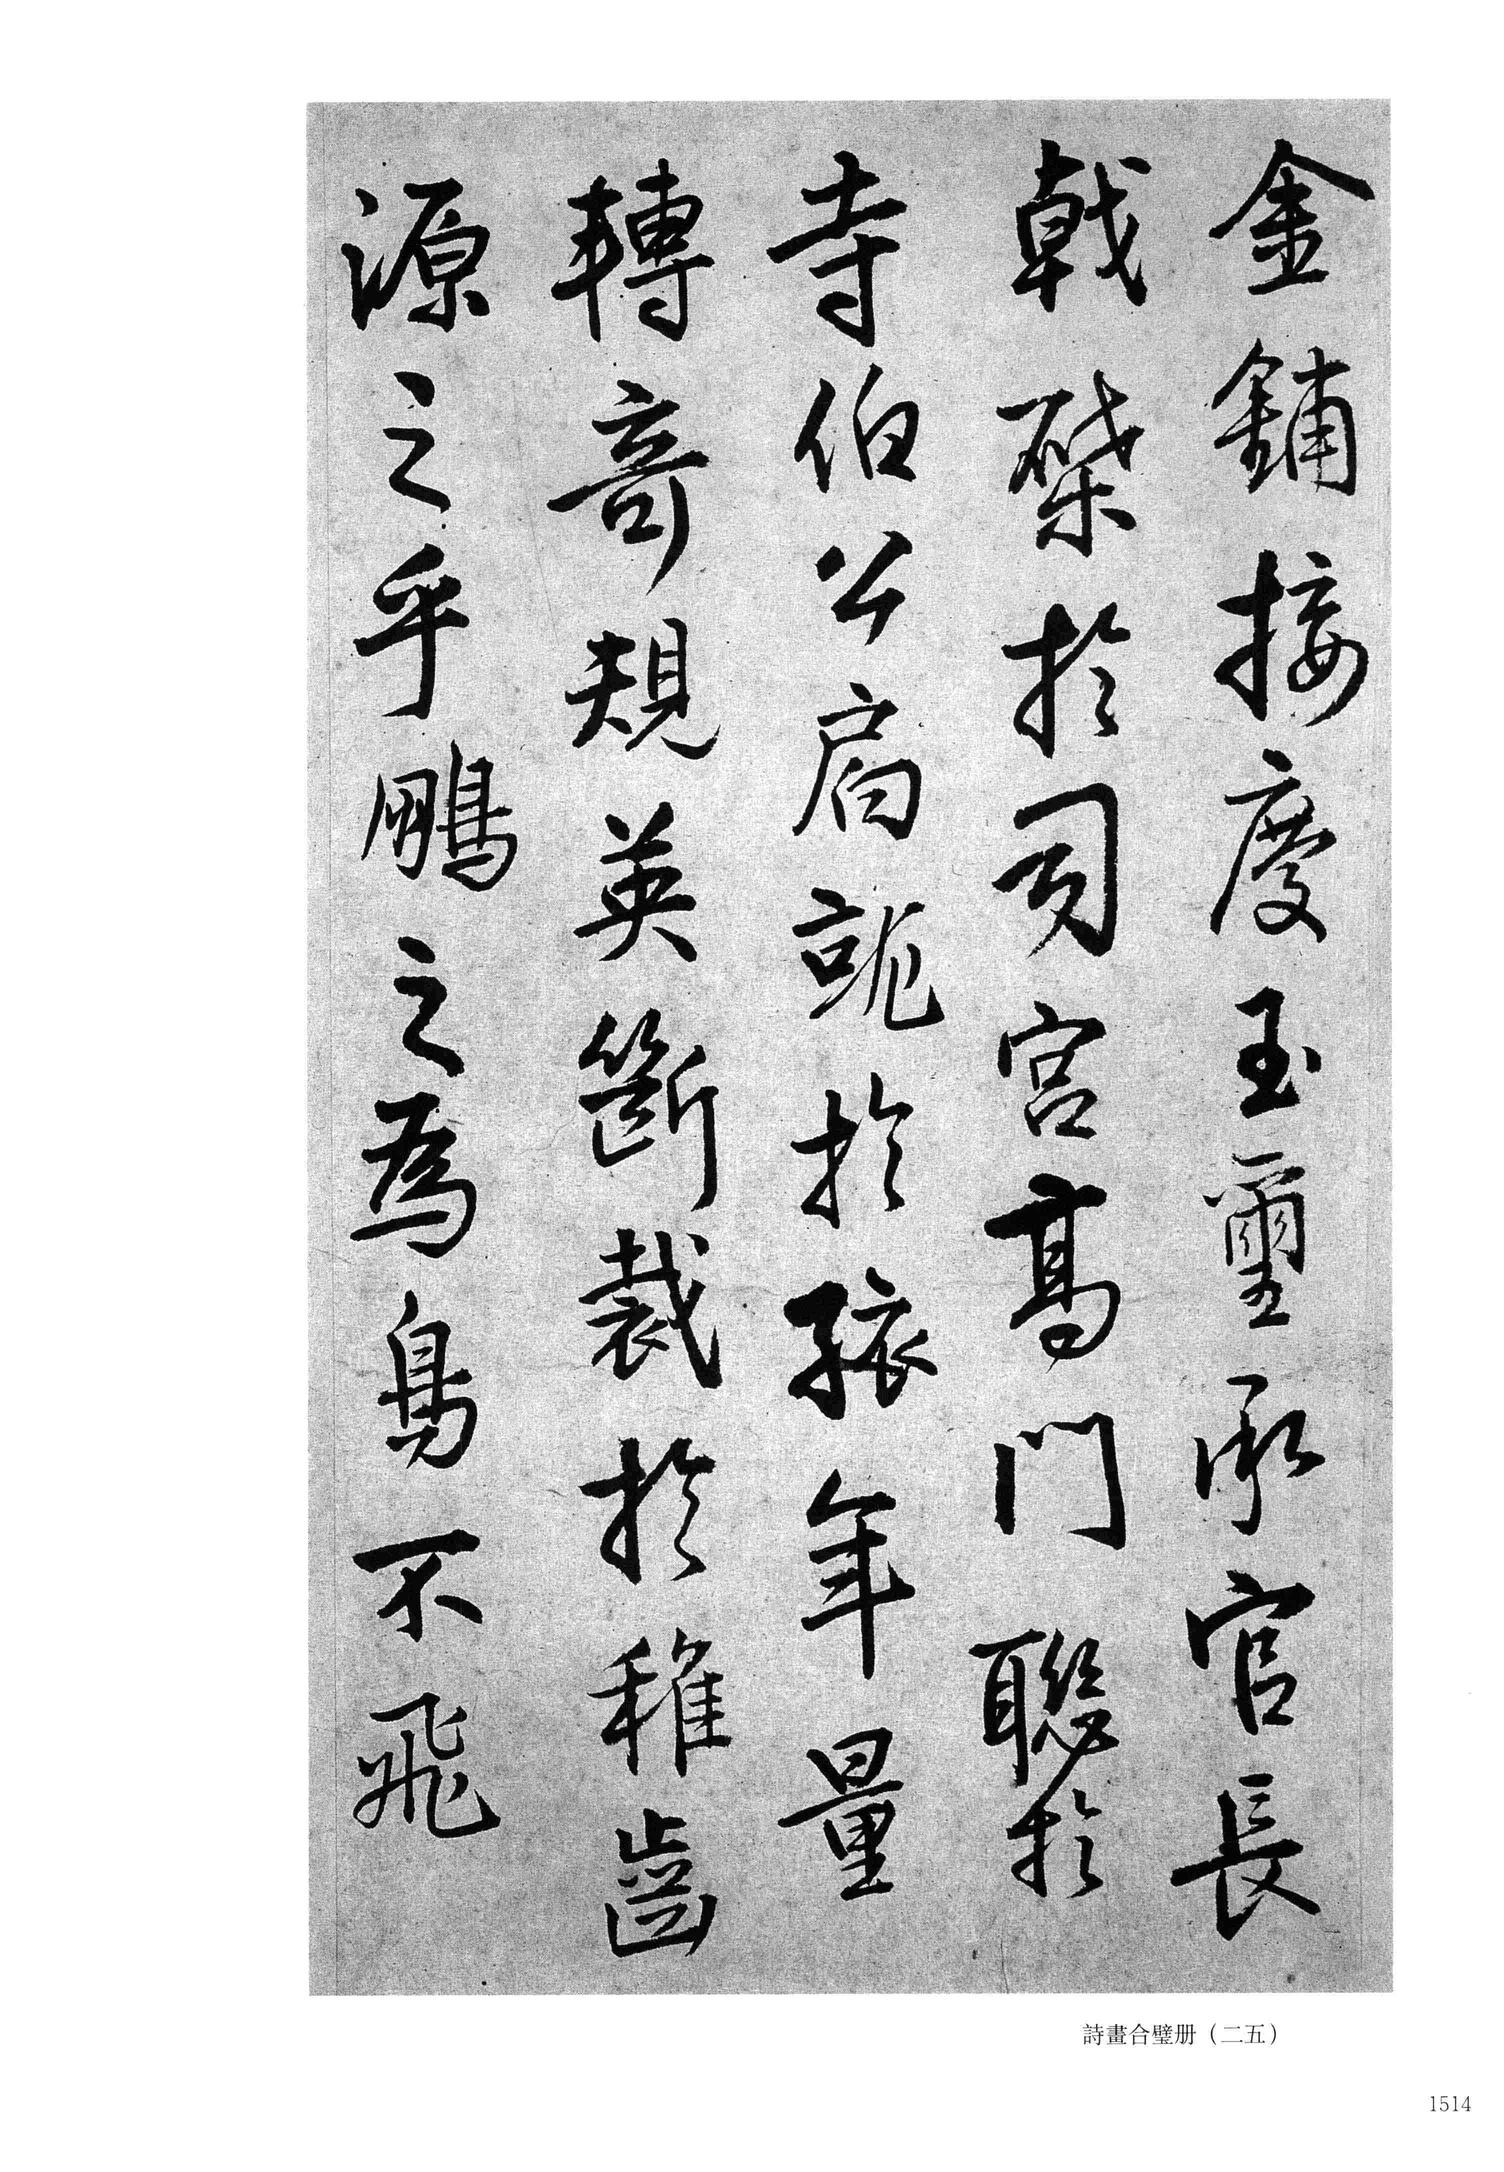 金鋪接慶玉璽承官長
戟棨於司宮高門聯於
寺伯公肩詭於孩年量
轉奇規英斷裁於稚齒
源之乎鵬之為鳥不飛
詩畫合璧册（二五）
1514